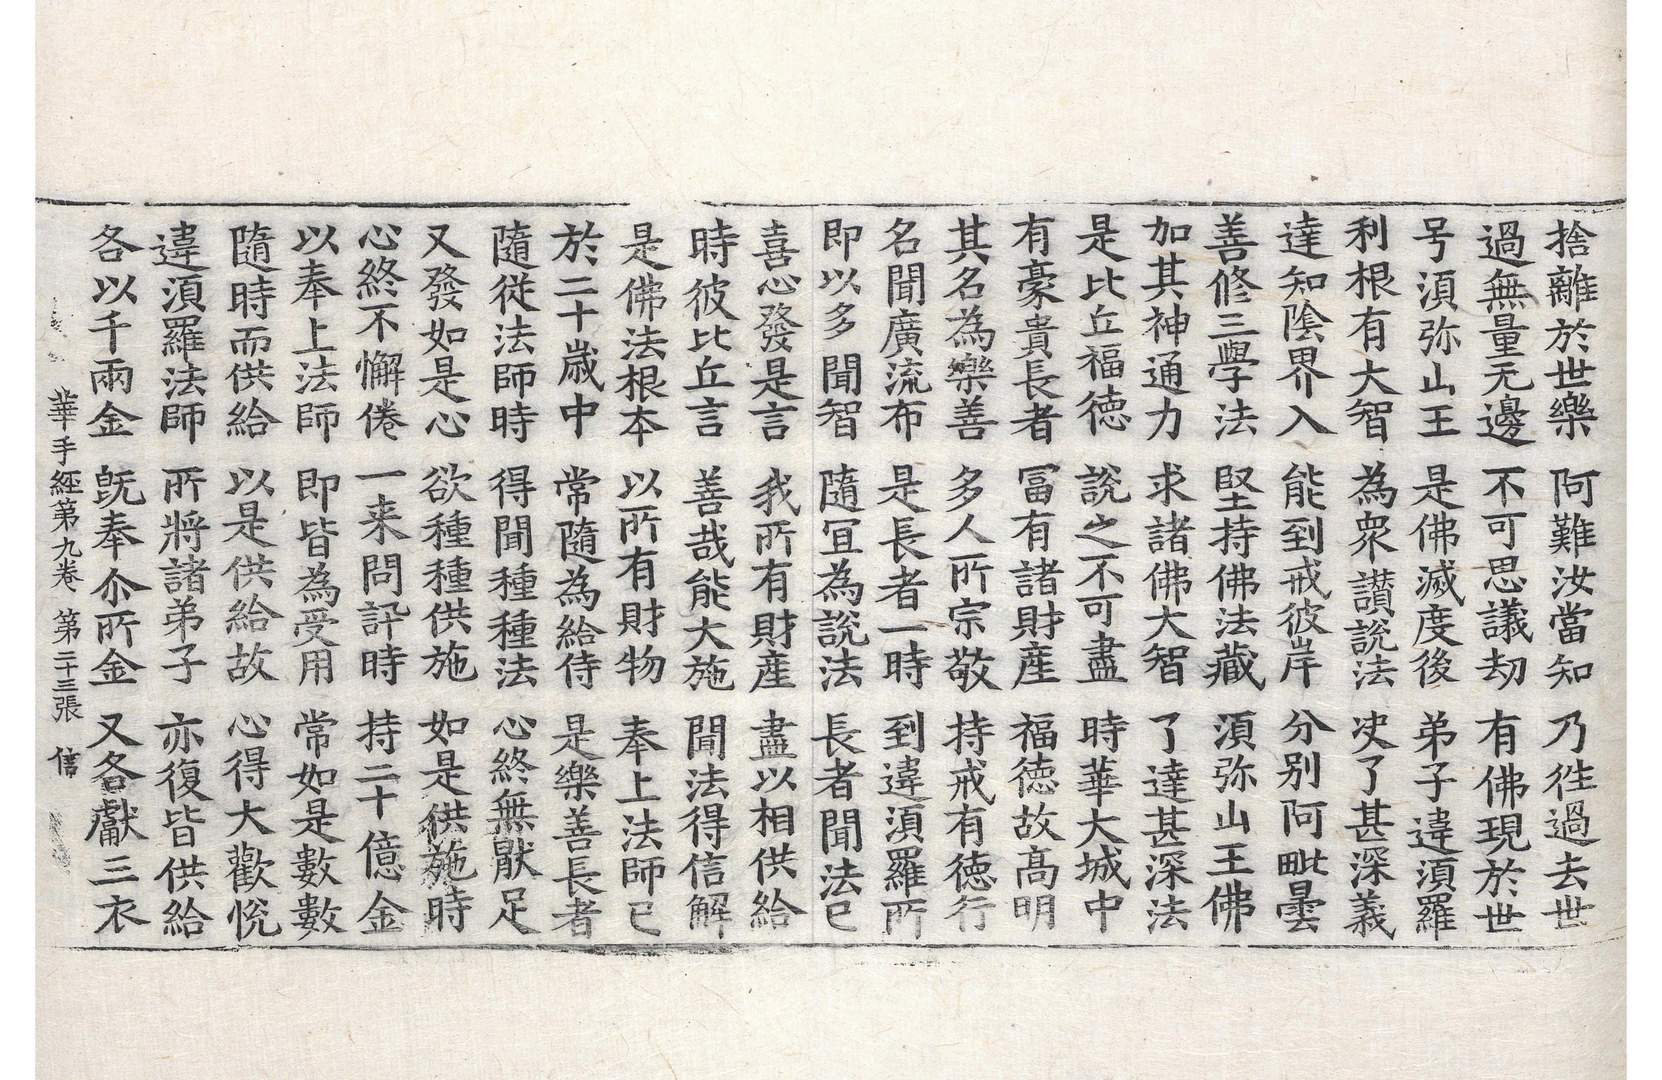 捨離於世樂 阿難汝當知 乃徃過去世
過無量无邊 不可思議劫 有佛現於世
号湏弥山王 是佛滅度後 弟子違湏羅
利根有大智 為衆讃說法 决了甚深義
達知陰界入 能到戒彼岸 分别阿毗曇
善修三學法 堅持佛法藏 湏弥山王佛
加其神通力 求諸佛大智 了達甚深法
是比丘福德 說之不可盡 時華大城中
有豪貴長者 冨有諸財産 福德故高明
其名為樂善 多人所宗敬 持戒有德行
名聞廣流布 是長者一時 到違湏羅所
即以多聞智 隨宜為說法 長者聞法已
喜心發是言 我所有財産 盡以相供給
時彼比丘言 善哉能大施 聞法得信解
是佛法根本 以所有財物 奉上法師已
於二十歲中 常隨為給侍 是樂善長者
隨從法師時 得聞種種法 心終無猒足
又發如是心 欲種種供施 如是供施時
心終不懈倦 一来問訊時 持二十億金
以奉上法師 即皆為受用 常如是數數
隨時而供給 以是供給故 心得大歡悅
違湏羅法師 所將諸弟子 亦復皆供給
各以千兩金 旣奉尒所金 又各獻三衣
華手經第九卷 第二十三張 信